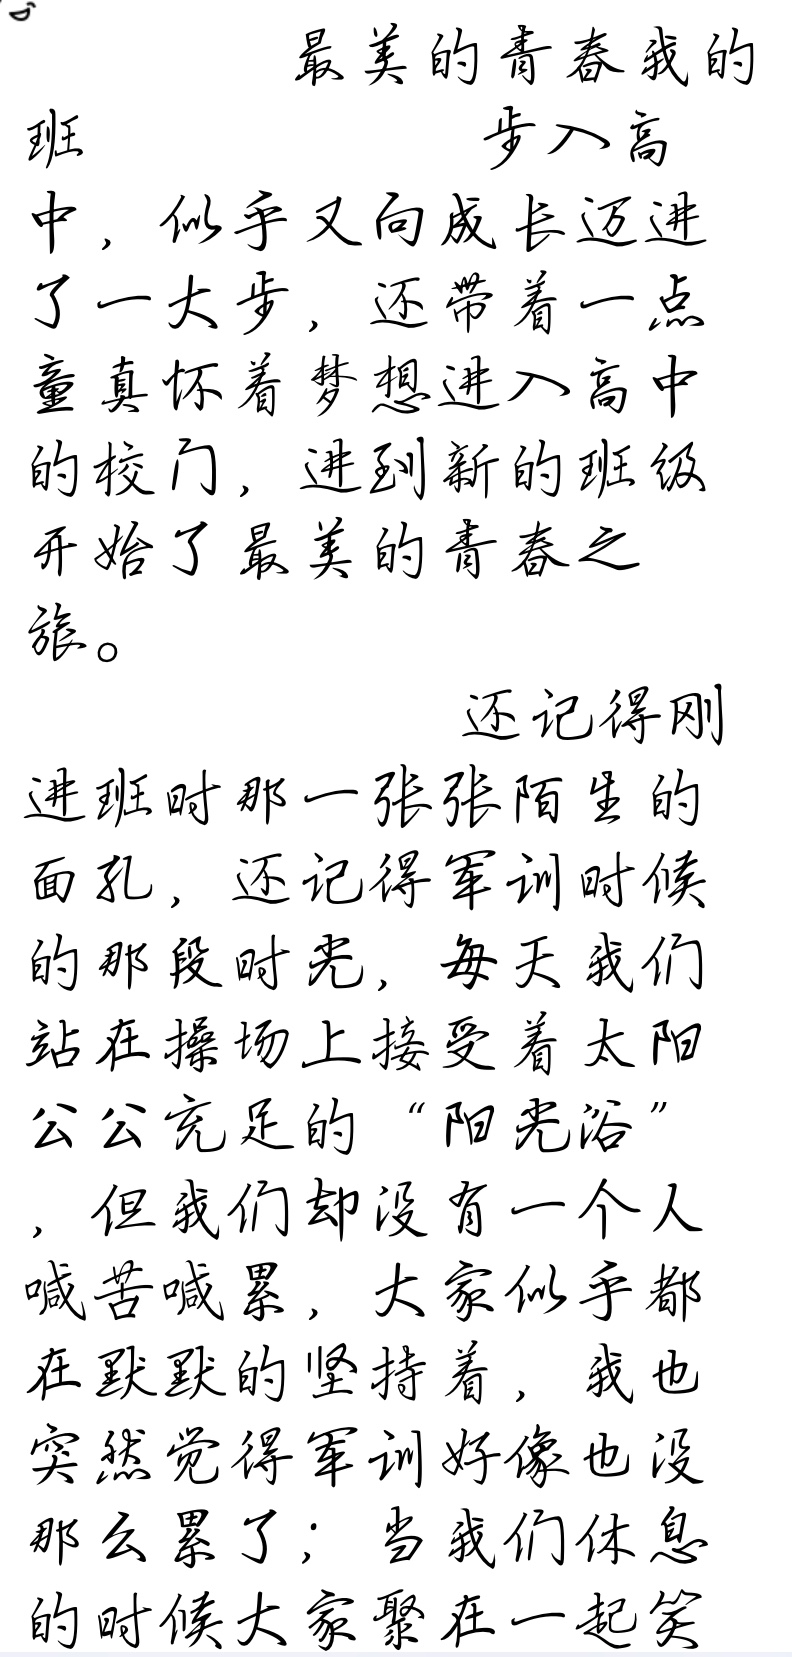 最美的青春我的
班 步入高
中，似乎又向成长迈进
了一大步，还带着一点
童真怀着梦想进入高中
的校门，进到新的班级
开始了最美的青春之
旅。
还记得刚
进班时那一张张陌生的
面孔，还记得军训时候
的那段时光，每天我们
站在操场上接受着太阳
公公充足的“阳光浴”
，但我们却没有一个人
喊苦喊累，大家似乎都
在默默的坚持着，我也
突然觉得军训好像也没
那么累了；当我们休息
的时候大家聚在一起笑